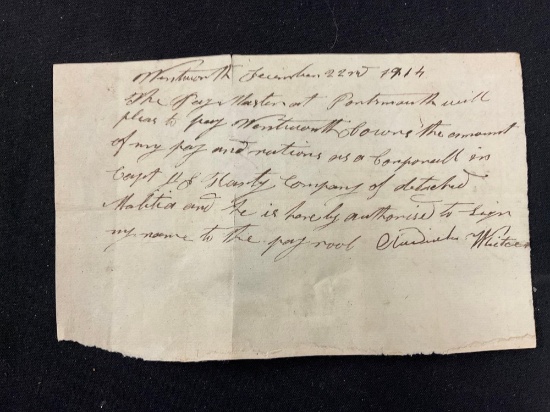 Wentworth December 22nd 1814
The Pay Master at Portsmouth will
pleas to pay Wentworth Cowns the amount
of my pay and rations as a Corporall in
Capt Hardy Company of detached
Malitia and he is hereby authorised to Sign
my name to the pay rool